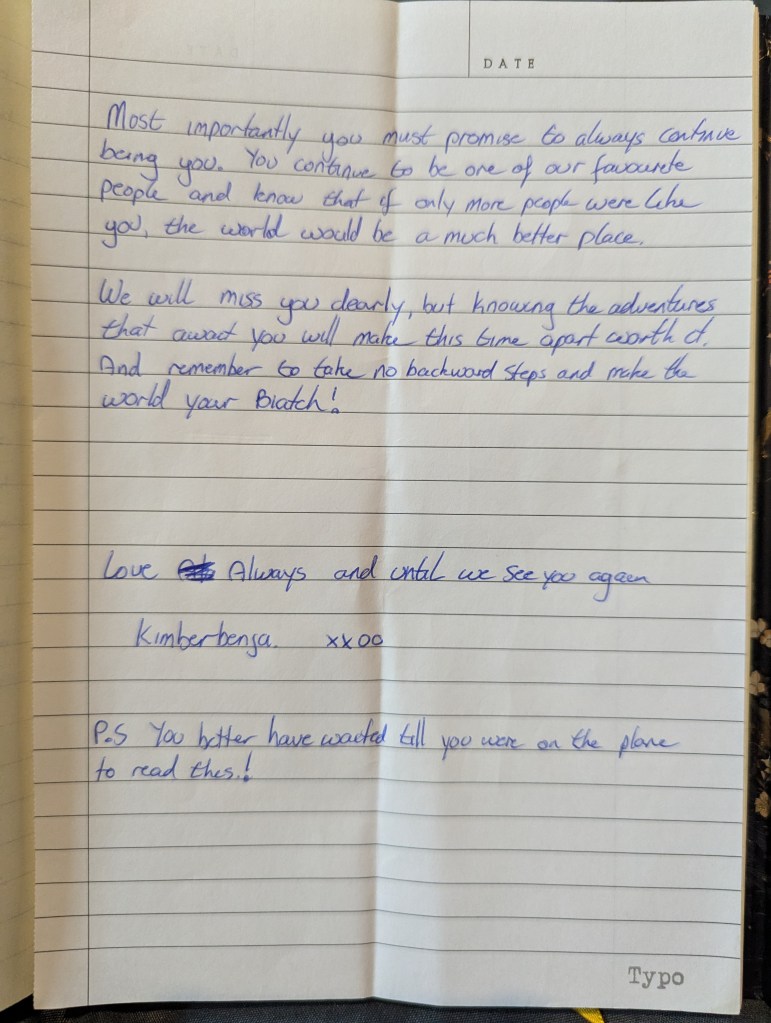 DATE
Most importantly you must promise to always continue
being you. You continue to be one of our favourite
people and know that if only more people were like
you, the world would be a much better place.
We will miss you dearly, but knowing the adventures
that await you will make this time apart worth it.
And remember to take no backward steps and make the
world your Biatch!
Love Always and until we see you again
Kimberbenja. xxoo
P.S You better have waited till you were on the plane
to read this.!
Typo